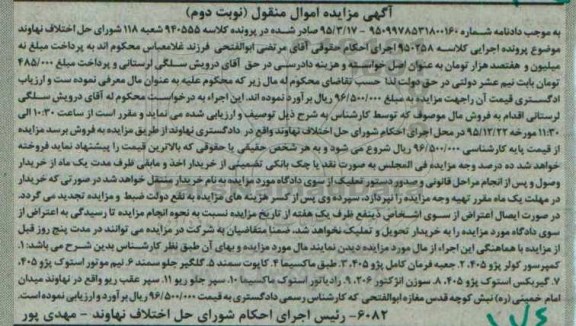 آگهی مزایده اموال منقول (نوبت دوم)
به موجب دادنامه شماره ۹۵۰۹۹۷۸۵۳۱۸۰۰۱۶۰ - ۹۵/۳/۱۷ صادر شده در پرونده کلاسه ۹۴۰۵۵۵ شعبه ۱۱۸ شورای حل اختلاف نهاوند
موضوع پرونده اجرایی کلاسه ۹۵۰۲۵۸ اجرای احکام حقوقی آقای مرتضی ابوالفتحی فرزند غلامعباس محکوم اند به پرداخت مبلغ نه
میلیون و هفتصد هزار تومان به عنوان اصل خواسته و هزینه دادرسی در حق آقای درویش سلگی لرستانی و پرداخت مبلغ ۴۸۵/۰۰۰
تومان بابت نیم عشر دولتی در حق دولت لذا حسب تقاضای محکوم له مال زیر که محکوم علیه به عنوان مال معرفی نموده ست و ارزیاب
ادگستری قیمت آن راجهت مزایده به مبلغ ۹۶/۵۰۰/۰۰۰ ریال برآورد نموده اند. این اجراء به درخواست محکوم له آقای درویش سلگی
لرستانی اقدام به فروش مال موصوف که توسط کارشناس به شرح ذیل توصیف و ارزیابی شده می نماید و مقرر است از ساعت ۱۰:۳۰ الی
۱۱:۳۰ مورخه ۹۵/۱۲/۲۲ در محل اجرای احکام شورای حل اختلاف نهاوند واقع در دادگستری نهاوند از طریق مزایده به فروش برسد مزایده
از قیمت پایه کارشناسی ۹۶/۵۰۰/۰۰۰ ریال شروع می شود و به هر شخص حقیقی یا حقوقی که بالاترین قیمت را پیشنهاد نماید فروخته
خواهد شد ده درصد وجه مزایده فی المجلس به صورت نقد یا چک بانکی تضمینی از خریدار اخذ و مابقی ظرف مدت یک ماه از خریدار
وصول و پس از انجام مراحل قانونی و صدور دستور تملیک از سوی دادگاه مورد مزایده به نام خریدار منتقل خواهد شد در صورتی که خریدار
در مهلت یک ماه مقرر تهیه وجه مزایده را نپردازد، سپرده وی پس از کسر هزینه های مزایده به نفع دولت ضبط و مزایده تجدید می گردد.
در صورت ایصال اعتراض از سوی اشخاص ذینفع ظرف یک هفته از تاریخ مزایده نسبت به نحوه انجام مزایده تا رسیدگی به اعتراض از
سوی دادگاه مورد مزایده را به خریدار تحویل و تملیک نخواهد شد. ضمنا متقاضیان به شرکت در مزایده می توانند در مدت پنج روز قبل
از مزایده با هماهنگی این اجراء از مال مورد مزایده دیدن نمایند مال مورد مزایده و بهای آن طبق نظر کارشناس بدین شرح می باشد: ۱.
کمپرسور کولر پژو ۴۰۵، ۲. جعبه فرمان کامل پژو ۴۰۵، ۳. طبق ماکسیما ۴. کاپوت سمند ۵. گلگیر جلو سمند ۶. نیم موتور استوک پژو ۴۰۵،
۷. گیربکس استوک پژو ۴۰۵، ۸. سوزن انژکتور ۲۰۶، ۹. رادیاتور استوک ماکسیما ۱۰. سپر جلو ریو ۱۱. سپر عقب ریو واقع در نهاوند میدان
امام خمینی (ره) نبش کوچه قدس مغازه ابوالفتحی که کارشناس رسمی دادگستری به قیمت ۹۶/۵۰۰/۰۰۰ ریال برآورد و ارزیابی نموده است.
۶۰۸۲- رئیس اجرای احکام شورای حل اختلاف نهاوند - مهدی پور